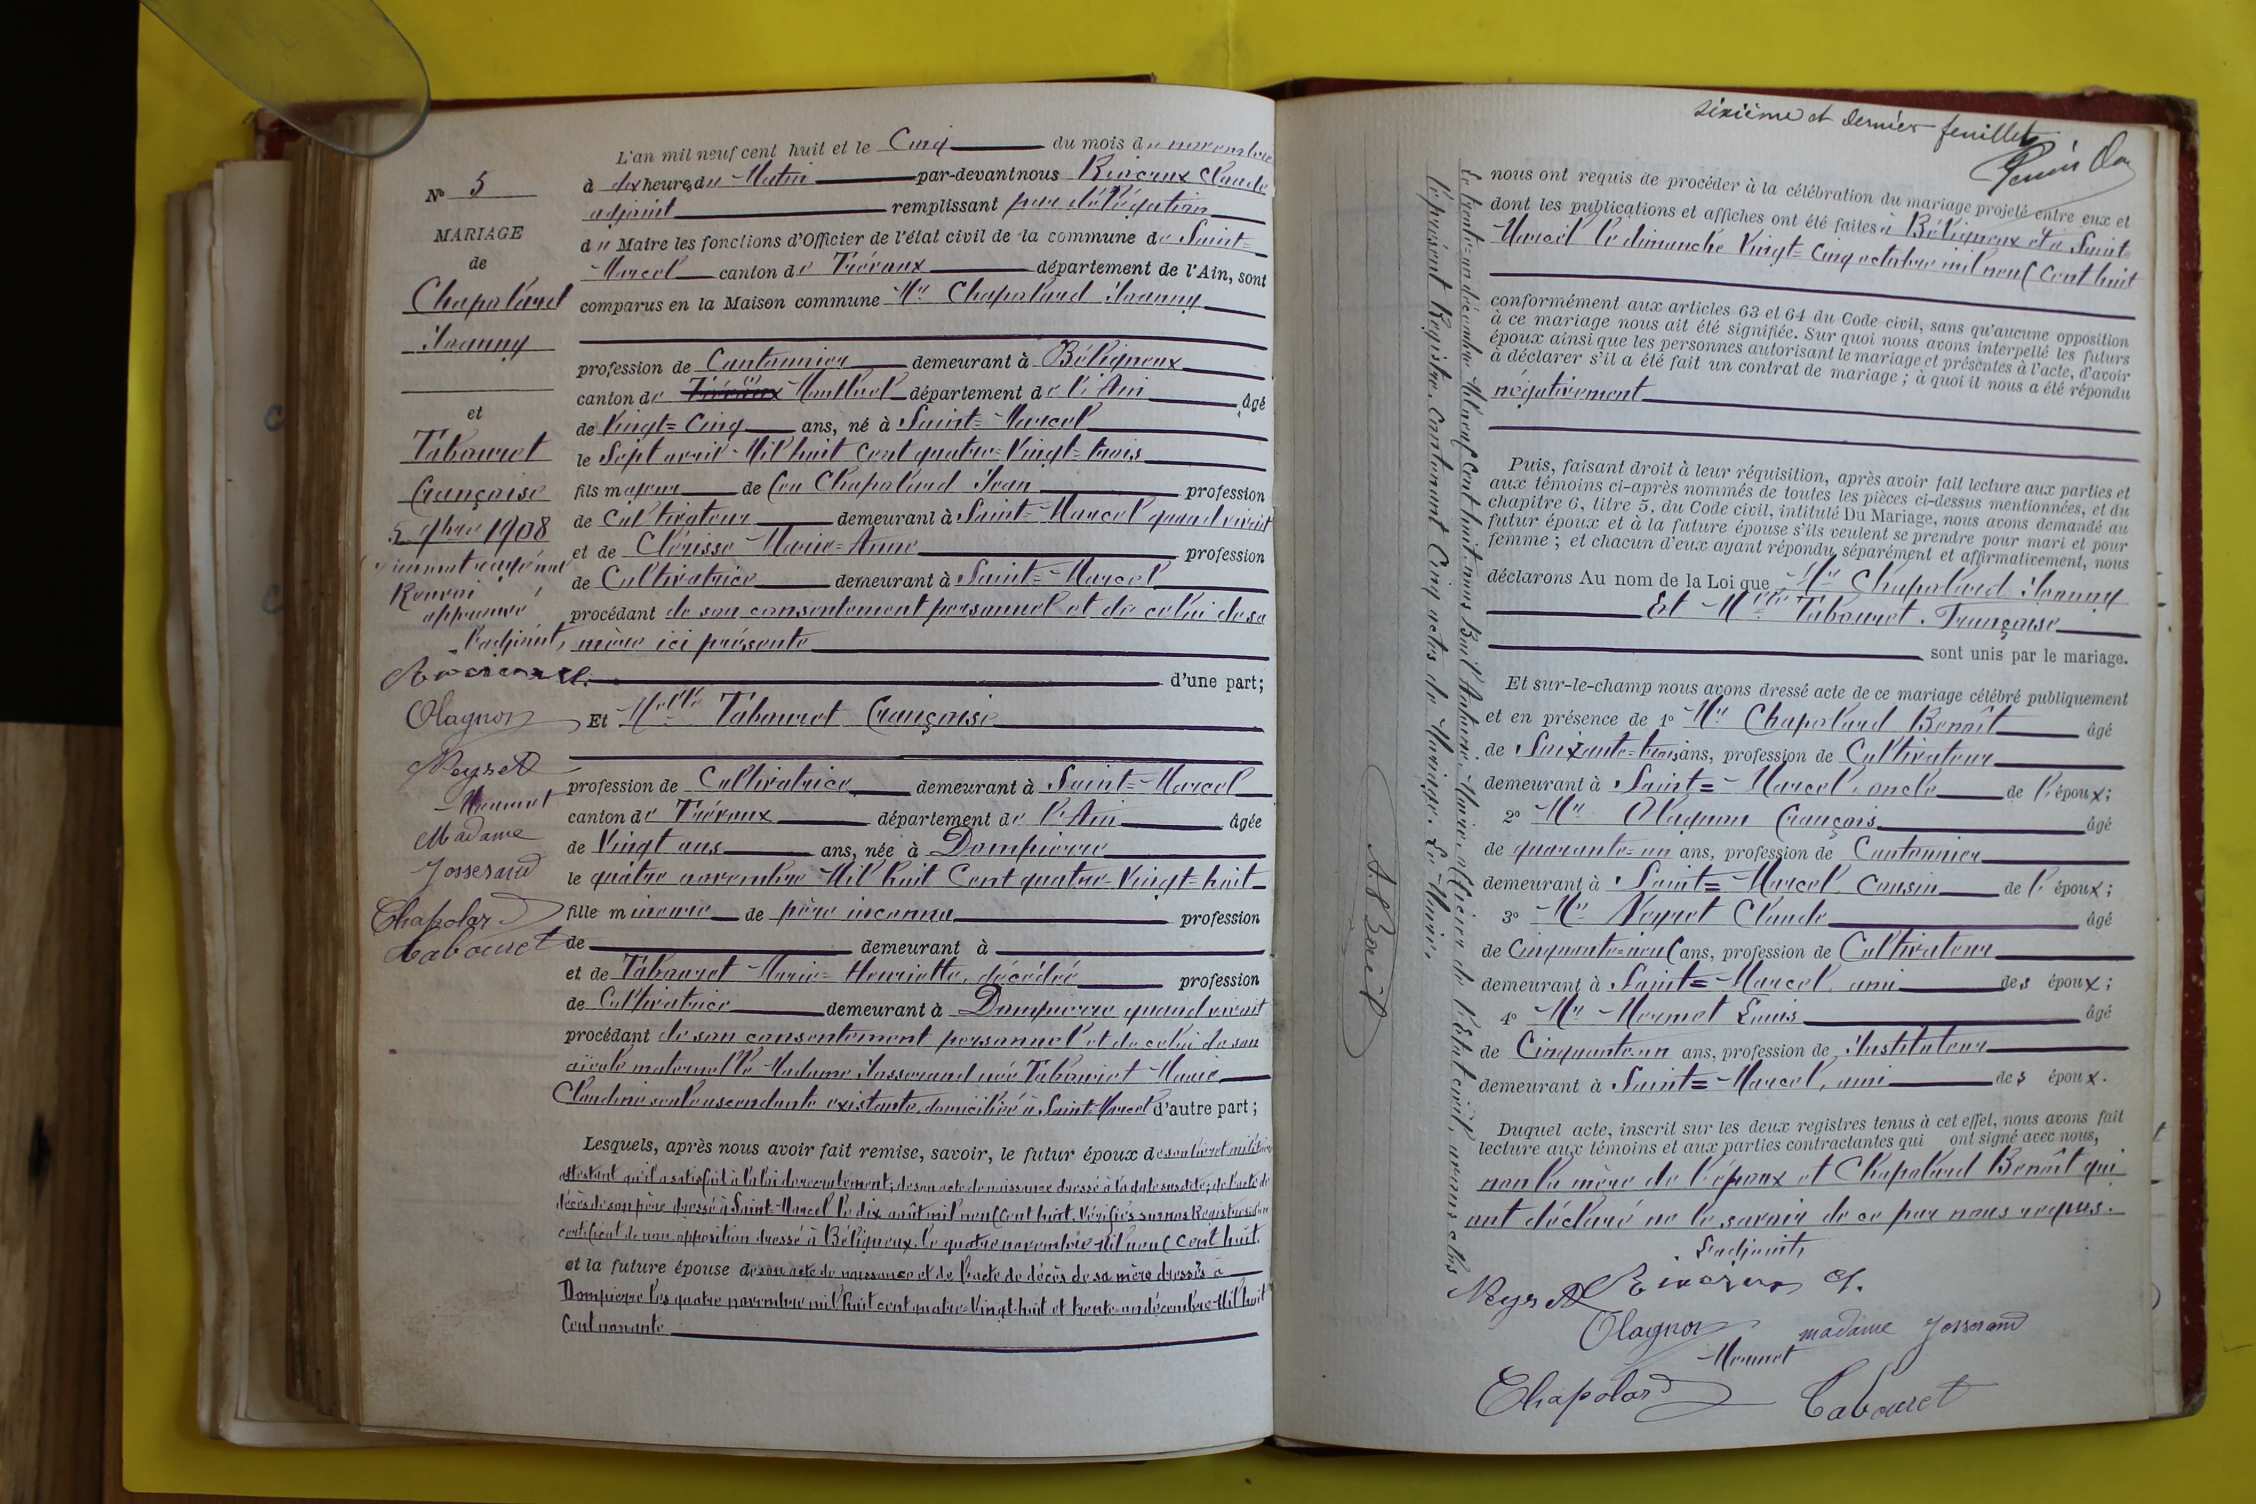 N° 5
MARIAGE
de
Chapolard
Joanny
et
Tabouret
Françoise
5 9bre 1908
Renvoi
approuvé
L'adjoint,
Olagnon
Neyret
Mermet
Madame
Josserand
Chapolard
Tabouret
L'an mil neuf cent huit et le Cinq du mois de novembre
à dix heures du Matin par-devant nous Rivoiux Claude
adjoint remplissant par délégation
du Maire les fonctions d'Officier de l'état civil de la commune de Saint=
Marcel canton de Trévoux département de l'Ain, sont
comparus en la Maison commune Mr Chapolard Joanny
profession de Cantonnier demeurant à Béligneux
canton de Trévoux Montluel département de l'Ain âgé
de Vingt=Cinq ans, né à Saint=Marcel
le Sept avril Mil huit Cent quatre=Vingt=trois
fils majeur de feu Chapolard Jean profession
de Cultivateur demeurant à Saint=Marcel quand vivait
et de Clérisse Marie=Anne profession
de Cultivatrice demeurant à Saint=Marcel
procédant de son consentement personnel et de celui de sa
mère ici présente
d'une part;
Et Melle Tabouret Françoise
profession de Cultivatrice demeurant à Saint=Marcel
canton de Trévoux département de l'Ain âgée
de Vingt ans ans, née à Dompierre
le quatre novembre Mil huit Cent quatre=Vingt=huit
fille mineure de père inconnu profession
de demeurant à
et de Tabouret Marie=Henriette, décédée profession
de Cultivatrice demeurant à Dompierre quand vivait
procédant de son consentement personnel et de celui de son
aïeule maternelle Madame Josserand née Tabouret Marie
Claudine seule ascendante existante, domiciliée à Saint=Marcel d'autre part;
Lesquels, après nous avoir fait remise, savoir, le futur époux de son livret militaire
attestant qu'il a satisfait à la loi de recrutement; de son acte de naissance dressé à la date susdite; de l'acte de
décès de son père dressé à Saint=Marcel le dix août mil neuf cent huit. Vérifiés sur nos Registres; d'un
certificat de non opposition dressé à Béligneux le quatre novembre Mil neuf Cent huit.
et la future épouse de son acte de naissance et de l'acte de décès de sa mère dressés à
Dompierre les quatre novembre mil huit cent quatre=Vingt=huit et trente=un décembre Mil huit
Cent nonante
sixième et dernier feuillet
nous ont requis de procéder à la célébration du mariage projeté entre eux et
dont les publications et affiches ont été faites à Béligneux et à Saint=
Marcel le dimanche Vingt=Cinq octobre mil neuf Cent huit
conformément aux articles 63 et 64 du Code civil, sans qu'aucune opposition
à ce mariage nous ait été signifiée. Sur quoi nous avons interpellé les futurs
époux ainsi que les personnes autorisant le mariage et présentes à l'acte, d'avoir
à déclarer s'il a été fait un contrat de mariage; à quoi il nous a été répondu
négativement
Puis, faisant droit à leur réquisition, après avoir fait lecture aux parties et
aux témoins ci-après nommés de toutes les pièces ci-dessus mentionnées, et du
chapitre 6, titre 5, du Code civil, intitulé Du Mariage, nous avons demandé au
futur époux et à la future épouse s'ils veulent se prendre pour mari et pour
femme; et chacun d'eux ayant répondu séparément et affirmativement, nous
déclarons Au nom de la Loi que Mr Chapolard Joanny
Et Melle Tabouret Françoise
sont unis par le mariage.
Et sur-le-champ nous avons dressé acte de ce mariage célébré publiquement
et en présence de 1° Mr Chapolard Benoît âgé
de Soixante=trois ans, profession de Cultivateur
demeurant à Saint=Marcel, oncle de l'époux;
2° Mr Olagnon François âgé
de quarante=un ans, profession de Cantonnier
demeurant à Saint=Marcel, Cousin de l'époux;
3° Mr Neyret Claude âgé
de Cinquante=neuf ans, profession de Cultivateur
demeurant à Saint=Marcel, ami des époux;
4° Mr Mermet Louis âgé
de Cinquante=un ans, profession de Instituteur
demeurant à Saint=Marcel, ami des époux.
Duquel acte, inscrit sur les deux registres tenus à cet effet, nous avons fait
lecture aux témoins et aux parties contractantes qui ont signé avec nous,
non la mère de l'époux et Chapolard Benoît qui
ont déclaré ne le savoir de ce par nous requis.
L'adjoint,
Neyret
Olagnon
madame Josserand
Mermet
Chapolard
Tabouret
Le trente=un décembre Mil neuf Cent huit, nous Buit Antoine, Maire, officier de l'Etat civil, avons clos
le présent Registre, Contenant Cinq actes de Mariage. Le Maire,